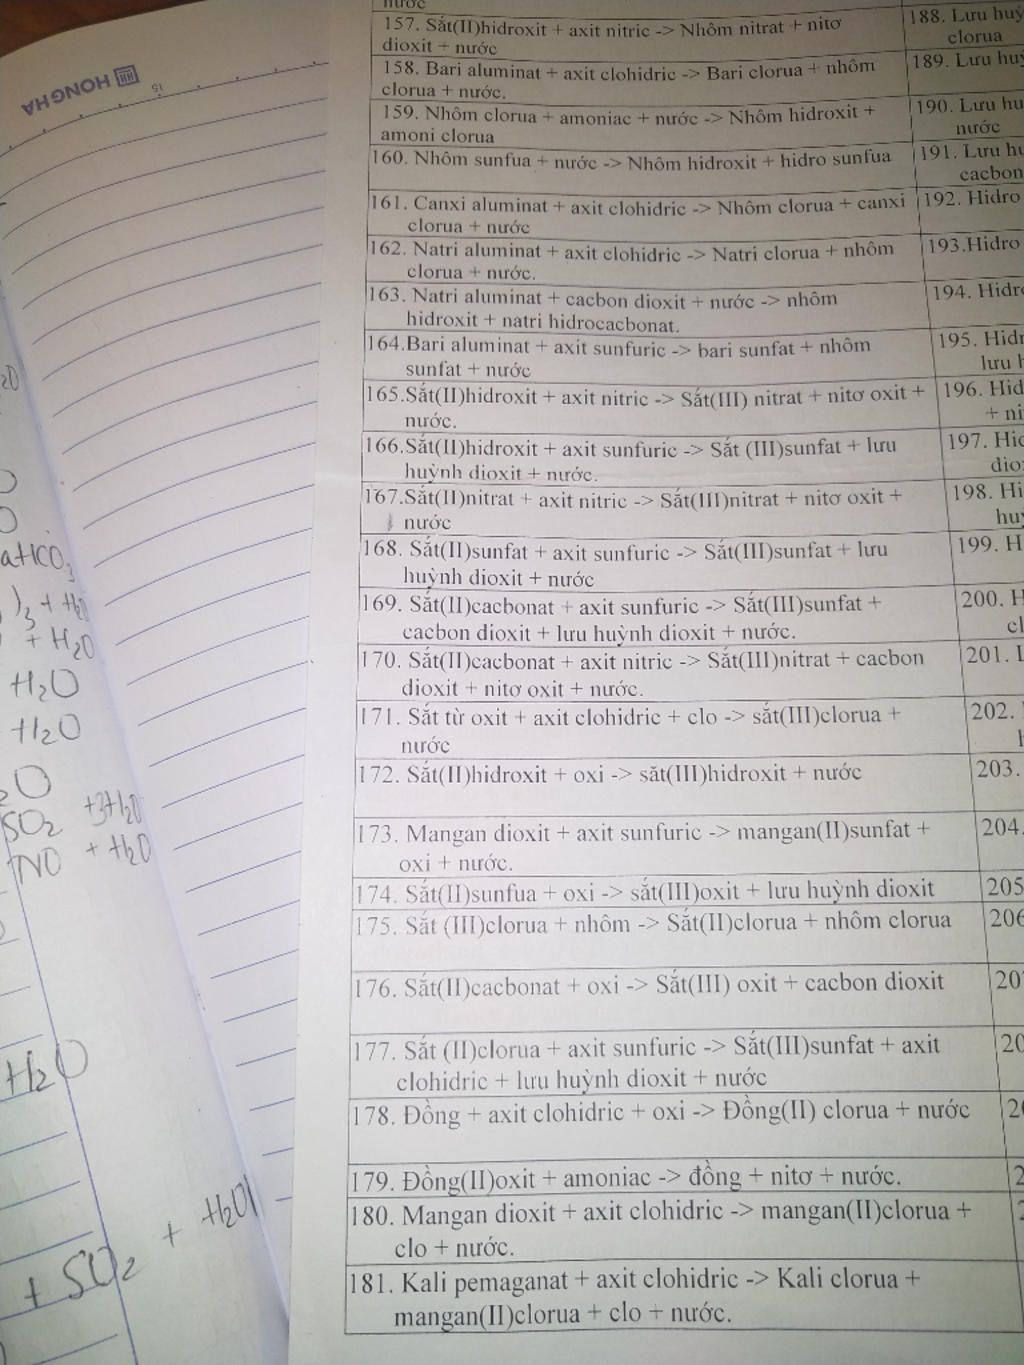 nước
157. Sắt(II)hidroxit + axit nitric -> Nhôm nitrat + nitơ
dioxit + nước
158. Bari aluminat + axit clohidric -> Bari clorua + nhôm
clorua + nước.
159. Nhôm clorua + amoniac + nước -> Nhôm hidroxit +
amoni clorua
160. Nhôm sunfua + nước -> Nhôm hidroxit + hidro sunfua
161. Canxi aluminat + axit clohidric -> Nhôm clorua + canxi
clorua + nước
162. Natri aluminat + axit clohidric -> Natri clorua + nhôm
clorua + nước.
163. Natri aluminat + cacbon dioxit + nước -> nhôm
hidroxit + natri hidrocacbonat.
164.Bari aluminat + axit sunfuric -> bari sunfat + nhôm
sunfat + nước
165.Sắt(II)hidroxit + axit nitric -> Sắt(III) nitrat + nitơ oxit +
nước.
166.Sắt(II)hidroxit + axit sunfuric -> Sắt (III)sunfat + lưu
huỳnh dioxit + nước.
167.Sắt(II)nitrat + axit nitric -> Sắt(III)nitrat + nitơ oxit +
nước
168. Sắt(II)sunfat + axit sunfuric -> Sắt(III)sunfat + lưu
huỳnh dioxit + nước
169. Sắt(II)cacbonat + axit sunfuric -> Sắt(III)sunfat +
cacbon dioxit + lưu huỳnh dioxit + nước.
170. Sắt(II)cacbonat + axit nitric -> Sắt(III)nitrat + cacbon
dioxit + nitơ oxit + nước.
171. Sắt từ oxit + axit clohidric + clo -> sắt(III)clorua +
nước
172. Sắt(II)hidroxit + oxi -> săt(III)hidroxit + nước
173. Mangan dioxit + axit sunfuric -> mangan(II)sunfat +
oxi + nước.
174. Sắt(II)sunfua + oxi -> sắt(III)oxit + lưu huỳnh dioxit
175. Sắt (III)clorua + nhôm -> Sắt(II)clorua + nhôm clorua
176. Sắt(II)cacbonat + oxi -> Sắt(III) oxit + cacbon dioxit
177. Sắt (II)clorua + axit sunfuric -> Sắt(III)sunfat + axit
clohidric + lưu huỳnh dioxit + nước
178. Đồng + axit clohidric + oxi -> Đồng(II) clorua + nước
179. Đồng(II)oxit + amoniac -> đồng + nitơ + nước.
180. Mangan dioxit + axit clohidric -> mangan(II)clorua +
clo + nước.
181. Kali pemaganat + axit clohidric -> Kali clorua +
mangan(II)clorua + clo + nước.
188. Lưu
clorua
189. Lưu
190. Lưu
nước
191. Lưu
cacbon
192. Hidro
193.Hidro
194.
195.
lưu
196.
197.
198.
199.
200.
201.
202.
203.
204.
205
206
HONG HA
15
+ H2O
+ H2O
H2O
H2O
SO2 +3H2O
NO + H2O
H2O
+ SO2 + H2O